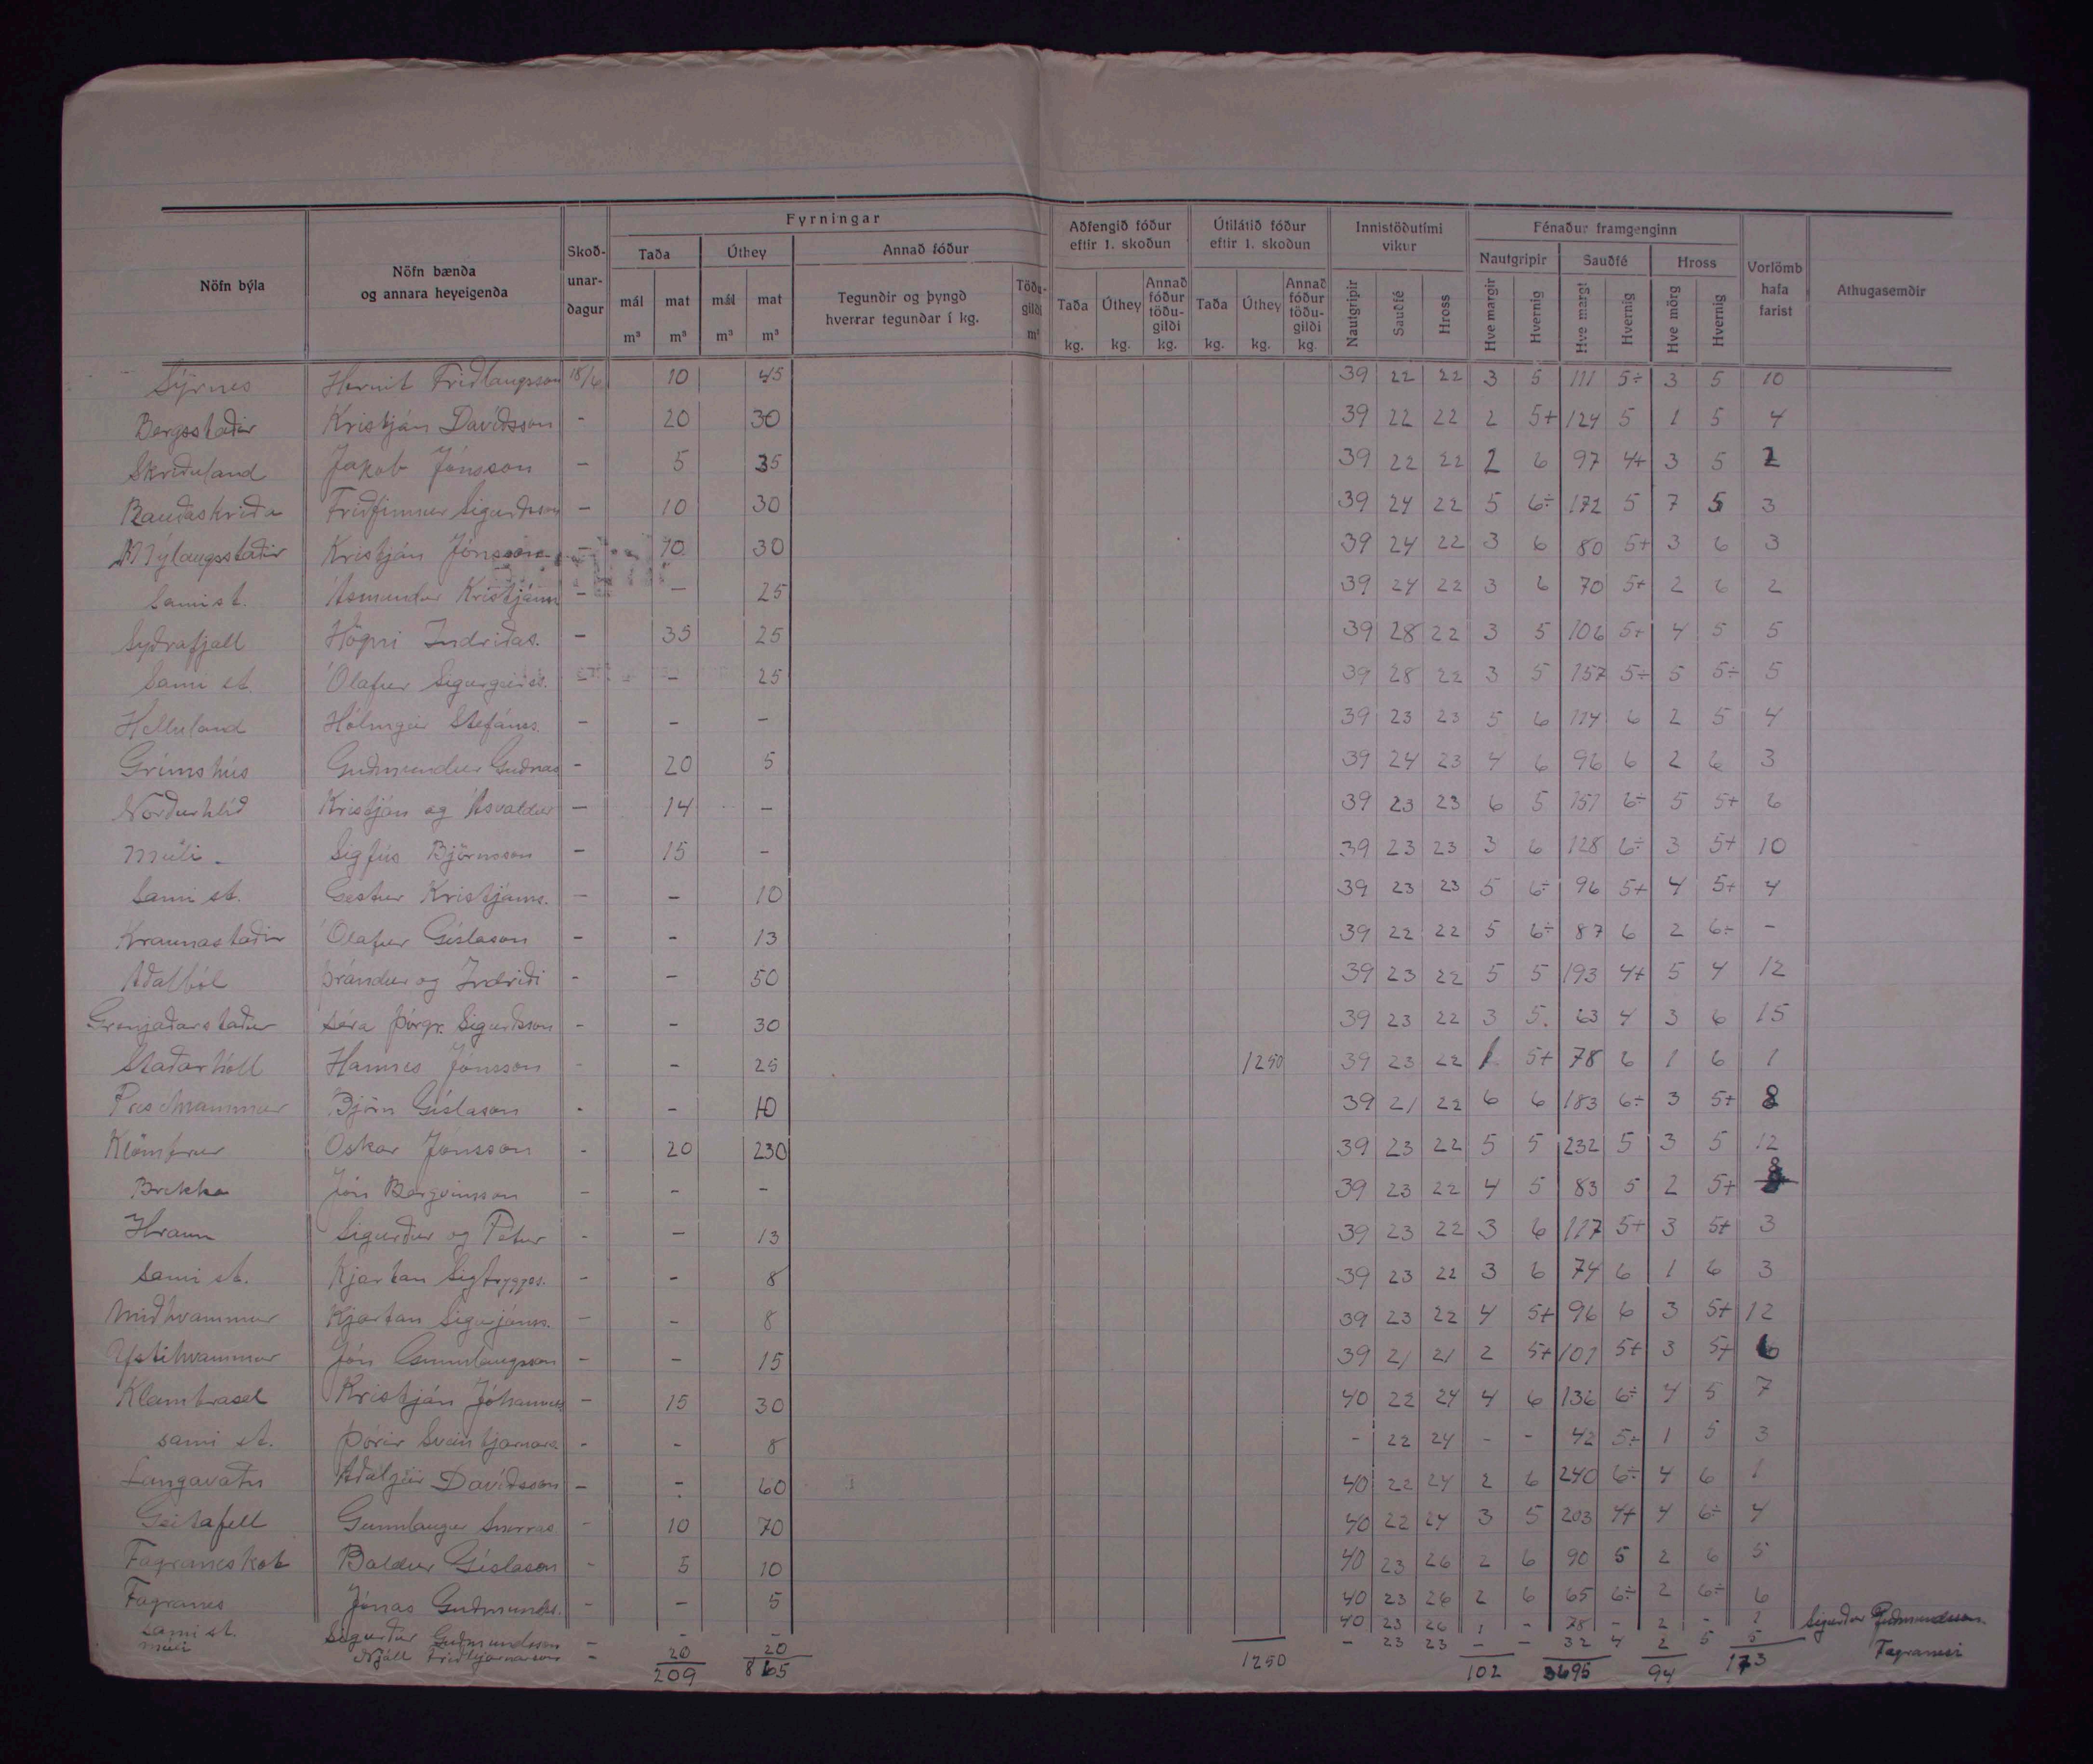 Fyrningar
Aðfengið fóður eftir 1. skoðun
Útilátið fóður eftir 1. skoðun
Innistöðutími vikur
Fénaður framgenginn
Nöfn býla
Nöfn bænda og annara heyeigenda
Skoð-unar-dagur
Taða
Úthey
Annað fóður
Nautgripir
Sauðfé
Hross
Vorlömb hafa farist
Athugasemdir
mál m³
mat m³
mál m³
mat m³
Tegundir og þyngd hverrar tegundar í kg.
Töðu-gildi m³
Taða kg.
Úthey kg.
Annað fóður töðu-gildi kg.
Taða kg.
Úthey kg.
Annað fóður töðu-gildi kg.
Nautgripir
Sauðfé
Hross
Hve margir
Hvernig
Hve margt
Hvernig
Hve mörg
Hvernig
Sýrnes Hernit Friðlaugsson 18/6 10 45 39 22 22 3 5 111 5÷ 3 5 10
Bergsstaðir Kristján Davíðsson - 20 30 39 22 22 2 5+ 124 5 1 5 4
Skriðuland Jakob Jónsson - 5 35 39 22 22 2 6 97 4+ 3 5
Rauðaskriða Friðfinnur Sigurðsson - 10 30 39 24 22 5 6÷ 172 5 7 5 3
Mýlaugsstaðir Kristján Jónsson - 10 30 39 24 22 3 6 80 5+ 3 6 3
Sami st. Ásmundur Kristjánss - - 25 39 24 22 3 6 70 5+ 2 6 2
Syðrafjall Högni Indriðas. - 35 25 39 28 22 3 5 106 5+ 4 5 5
Sami st. Ólafur Sigurgeirss. - - 25 39 28 22 3 5 157 5÷ 5 5÷ 5
Helluland Hólmgeir Stefánss. - - - 39 23 23 5 6 114 6 2 5 4
Grímshús Guðmundur Guðnas - 20 5 39 24 23 4 6 96 6 2 6 3
Norðurhlíð Kristján og Ásvaldur - 14 - 39 23 23 6 5 151 6÷ 5 5+ 6
Múli - Sigfús Björnsson - 15 - 39 23 23 3 6 128 6÷ 3 5+ 10
Sami st. Gestur Kristjánss. - - 10 39 23 23 5 6÷ 96 5+ 4 5+ 4
Kraunastaðir Ólafur Gíslason - - 13 39 22 22 5 6÷ 87 6 2 6÷ -
Aðalból Þrándur og Indriði - - 50 39 23 22 5 5 193 4+ 5 4 12
Grenjaðarstaður séra Þorgr. Sigurðsson - - 30 39 23 22 3 5. 63 4 3 6 15
Staðarhóll Hannes Jónsson - - 25 1250 39 23 22 1 5+ 78 6 1 6 1
Presthvammur Björn Gíslason - - 10 39 21 22 6 6 183 6÷ 3 5+ 8
Klömbrur Óskar Jónsson - 20 230 39 23 22 5 5 232 5 3 5 12
Brekka Jón Bergvinsson - - - 39 23 22 4 5 83 5 2 5+ 8
Hraun Sigurður og Pétur - - 13 39 23 22 3 6 117 5+ 3 5+ 3
Sami st. Kjartan Sigtryggss. - - 8 39 23 22 3 6 74 6 1 6 3
Miðhvammur Kjartan Sigurjónss. - - 8 39 23 22 4 5+ 96 6 3 5+ 12
Ystihvammur Jón Gunnlaugsson - - 15 39 21 21 2 5+ 101 5+ 3 5+ 6
Klambrasel Kristján Jóhanness - 15 30 40 22 24 4 6 136 6÷ 4 5 7
sami st. Þórir Sveinbjarnars - - 8 - 22 24 - - 42 5÷ 1 5 3
Langavatn Aðalgeir Davíðsson - - 60 40 22 24 2 6 240 6÷ 4 6 1
Geitafell Gunnlaugur Snorras - 10 70 40 22 24 3 5 203 4+ 4 6÷ 4
Fagraneskot Baldur Gíslason - 5 10 40 23 26 2 6 90 5 2 6 5
Fagranes Jónas Guðmundss. - - 5 40 23 26 2 6 65 6÷ 2 6÷ 6
sami st. Sigurður Guðmundsson - - - 40 23 26 1 - 28 - 2 - 2 Sigurður Guðmundsson
múli Njáll Friðbjarnarson - 20 20 - 23 23 - - 32 4 2 5 5 Fagranesi
209 865 1250 102 3695 94 173